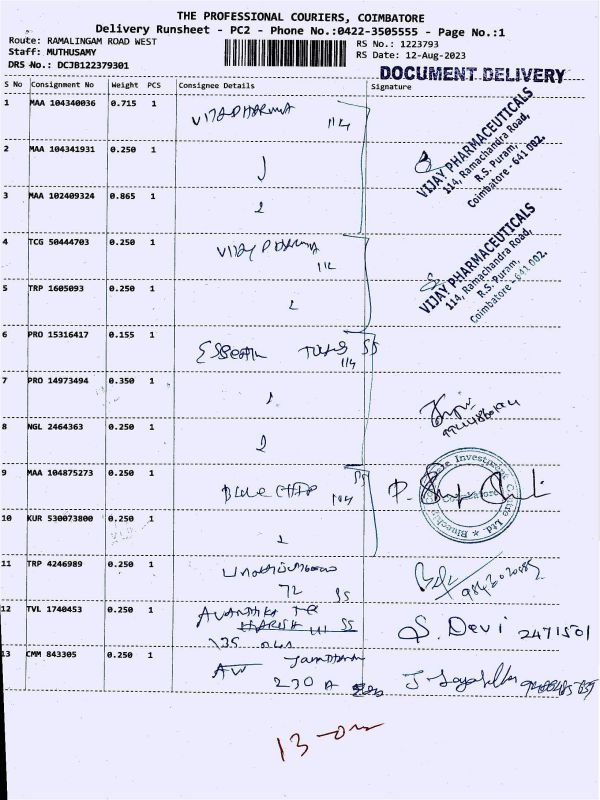 THE PROFESSIONAL COURIERS, COIMBATORE
Delivery Runsheet - PC2 - Phone No.:0422-3505555 - Page No.:1
Route: RAMALINGAM ROAD WEST
Staff: MUTHUSAMY
DRS No.: DCJB122379301
RS No.: 1223793
RS Date: 12-Aug-2023
DOCUMENT DELIVERY
S No Consignment No Weight PCS Consignee Details Signature
1 MAA 104340036 0.715 1 VIJAY PHARMA
114
2 MAA 104341931 0.250 1
3 MAA 102409324 0.865 1
VIJAY PHARMACEUTICALS
114, Ramachandra Road,
R.S. Puram,
Coimbatore - 641 002.
4 TCG 50444703 0.250 1 VIJAY PHARMA
114
5 TRP 1605093 0.250 1
VIJAY PHARMACEUTICALS
114, Ramachandra Road,
R.S. Puram,
Coimbatore - 641 002.
6 PRO 15316417 0.155 1 SS
114
7 PRO 14973494 0.350 1
8 NGL 2464363 0.250 1
9 MAA 104875273 0.250 1 BLUE CHIP SS
104
Investment
Coimbatore
Ltd.
10 KUR 530073800 0.250 1
11 TRP 4246989 0.250 1
72 SS
12 TVL 1740453 0.250 1 AVANTHIKA
HARISH SS
S. Devi 2471501
13 CMM 843305 0.250 1
230 A
13